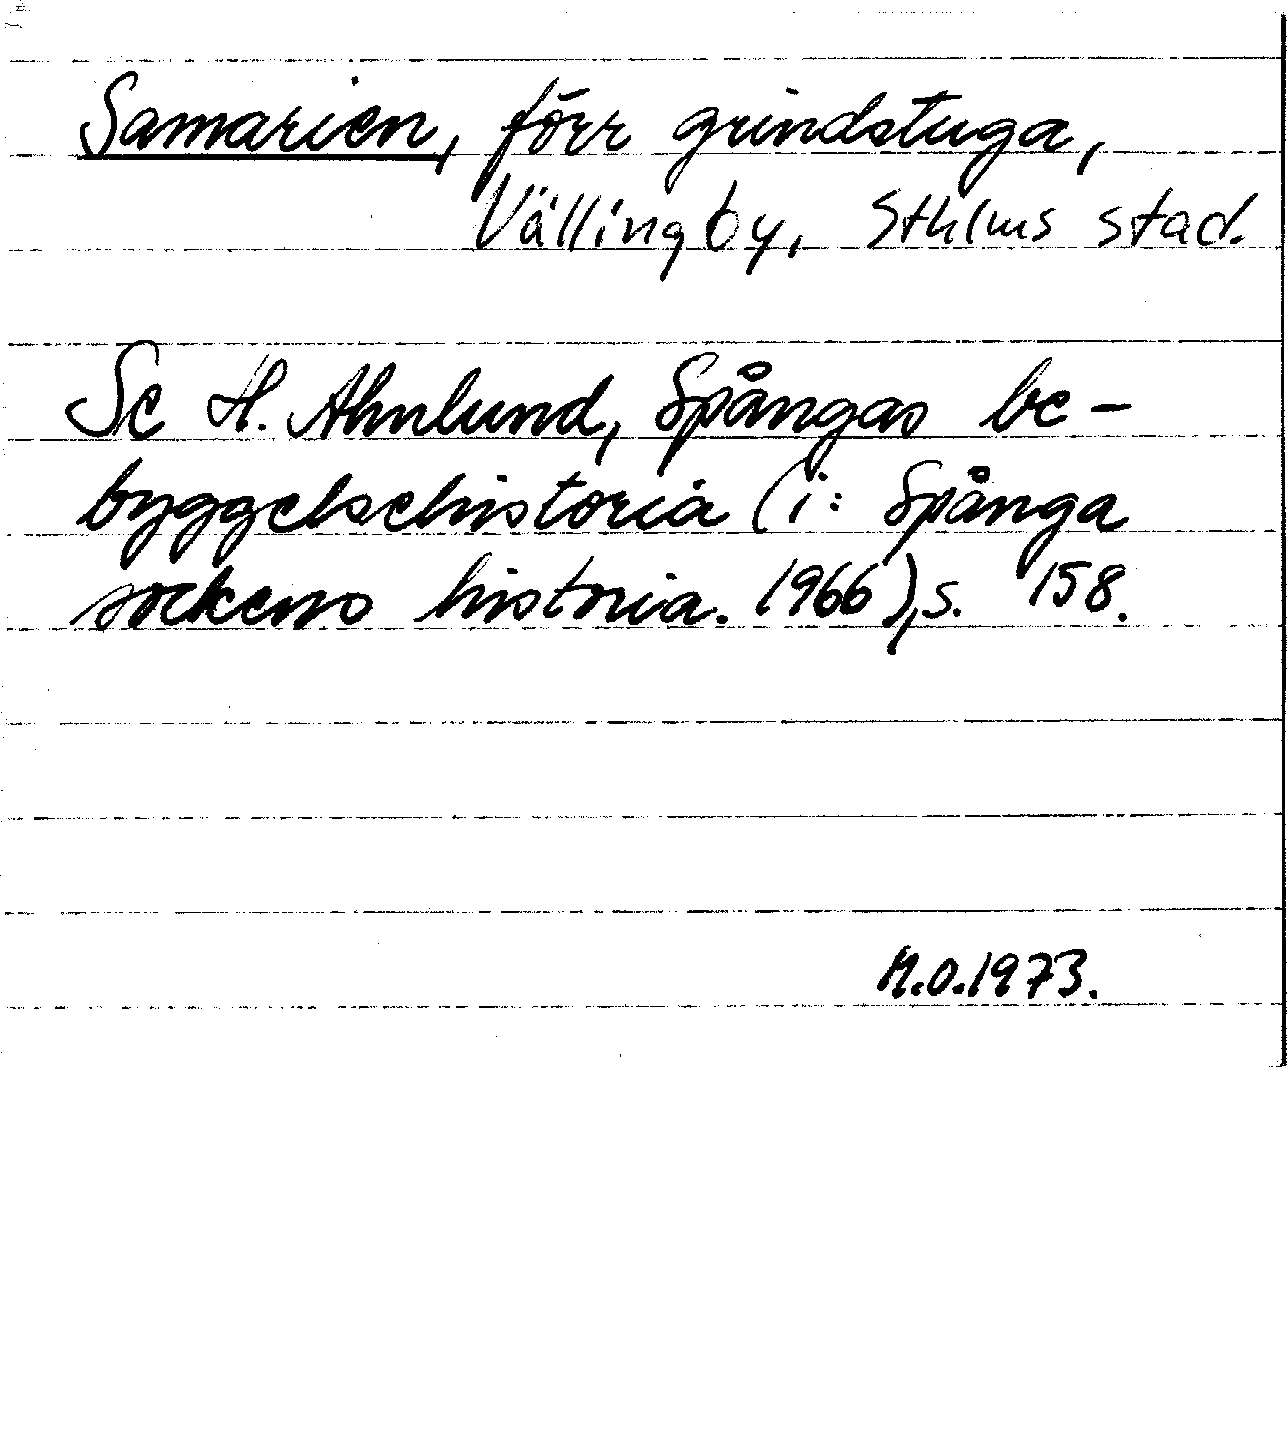 Samarien, förr grindstuga,
Vällingby, Sthlms stad.
Se H. Ahnlund, Spångas be-
byggelsehistoria (i: Spånga
sockens historia. 1966), s. 158.
M.O.1973.